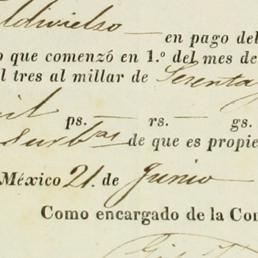 en pago del
o que comenzó en 1.º del mes de
l tres al millar de Sesenta y
il ps. rs. gs.
de que es propie
México 21. de Junio
Como encargado de la Con